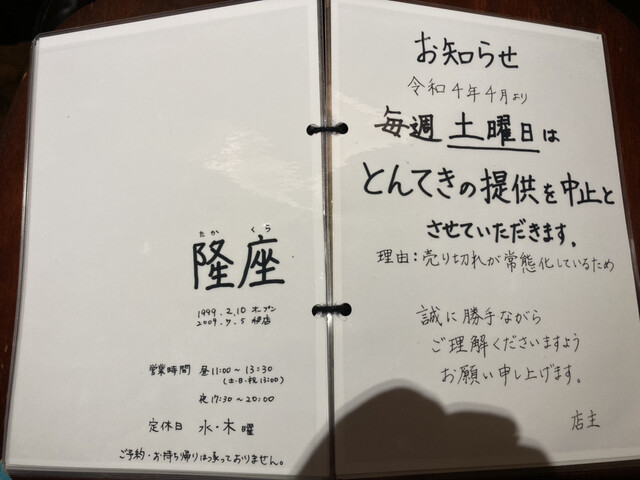 たか くら
隆座
1999.2.10 オープン
2009.7.5 移店
営業時間 昼 11:00〜13:30
(土・日・祝 13:00)
夜 17:30〜20:00
定休日 水・木曜
ご予約・お持ち帰りは承っておりません。
お知らせ
令和4年4月より
毎週 土曜日は
とんてきの提供を中止と
させていただきます。
理由:売り切れが常態化しているため
誠に勝手ながら
ご理解くださいますよう
お願い申し上げます。
店主